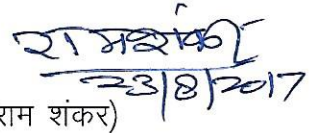 रामशंकर
23/8/2017
राम शंकर)